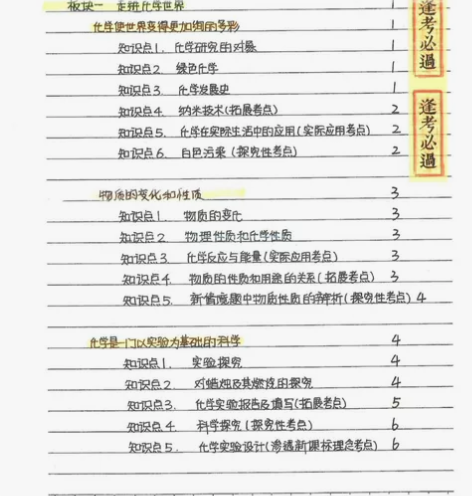 板块一 走进化学世界 1
化学使世界变得更加绚丽多彩 1
知识点1. 化学研究的对象 1
知识点2 绿色化学 1
知识点3. 化学发展史 1
知识点4. 纳米技术(拓展考点) 2
知识点5. 化学在实际生活中的应用(实际应用考点) 2
知识点6. 白色污染(探究性考点) 2
逢考必過
逢考必過
物质的变化和性质 3
知识点1. 物质的变化 3
知识点2 物理性质和化学性质 3
知识点3. 化学反应与能量(实际应用考点) 3
知识点4 物质的性质和用途的关系(拓展考点) 3
知识点5. 新情境题中物质性质的辨析(探究性考点) 4
化学是一门以实验为基础的科学 4
知识点1. 实验探究 4
知识点2 对蜡烛及其燃烧的探究 4
知识点3. 化学实验报告及填写(拓展考点) 5
知识点4. 科学探究(探究性考点) 6
知识点5. 化学实验设计(渗透新课标理念考点) 6